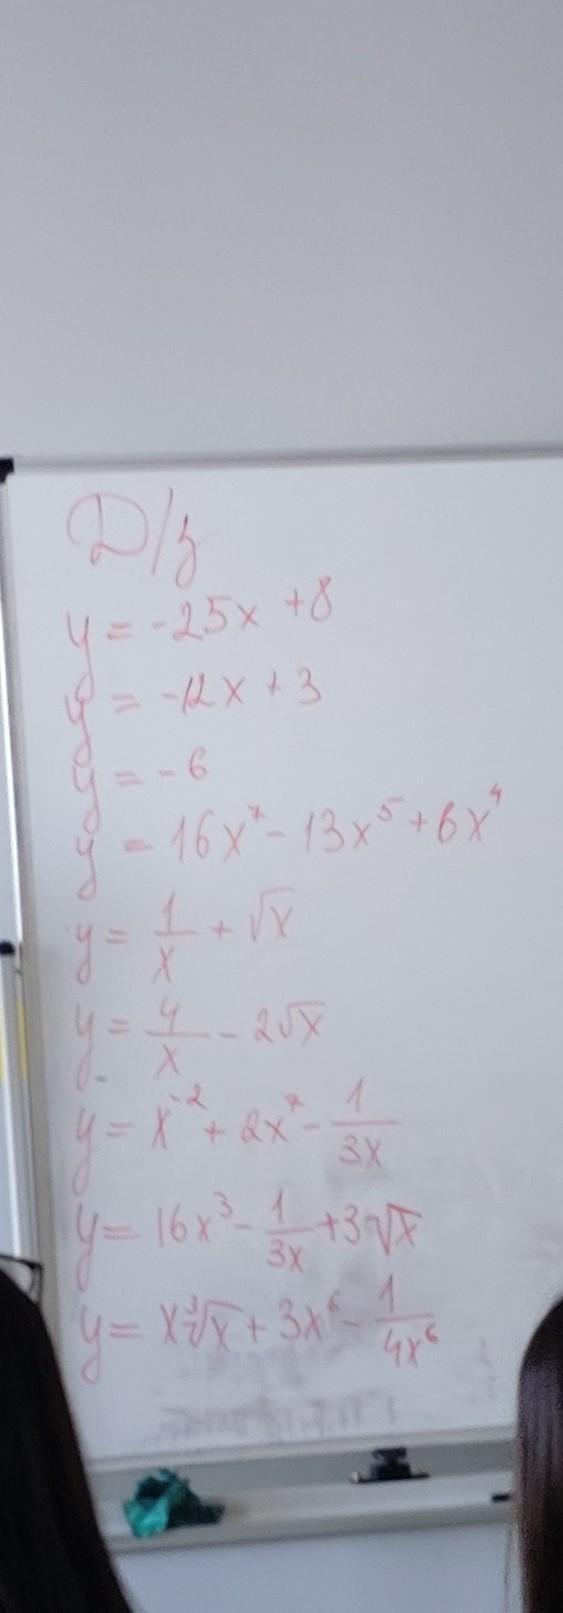 Д/з
y = -25x + 8
y = -12x + 3
y = -6
y = 16x⁷ - 13x⁵ + 6x⁴
y = 1/x + √x
y = 4/x - 2√x
y = x⁻² + 2x⁷ - 1/3x
y = 16x³ - 1/3x + 3√x
y = x ∛x + 3x⁶ - 1/4x⁶